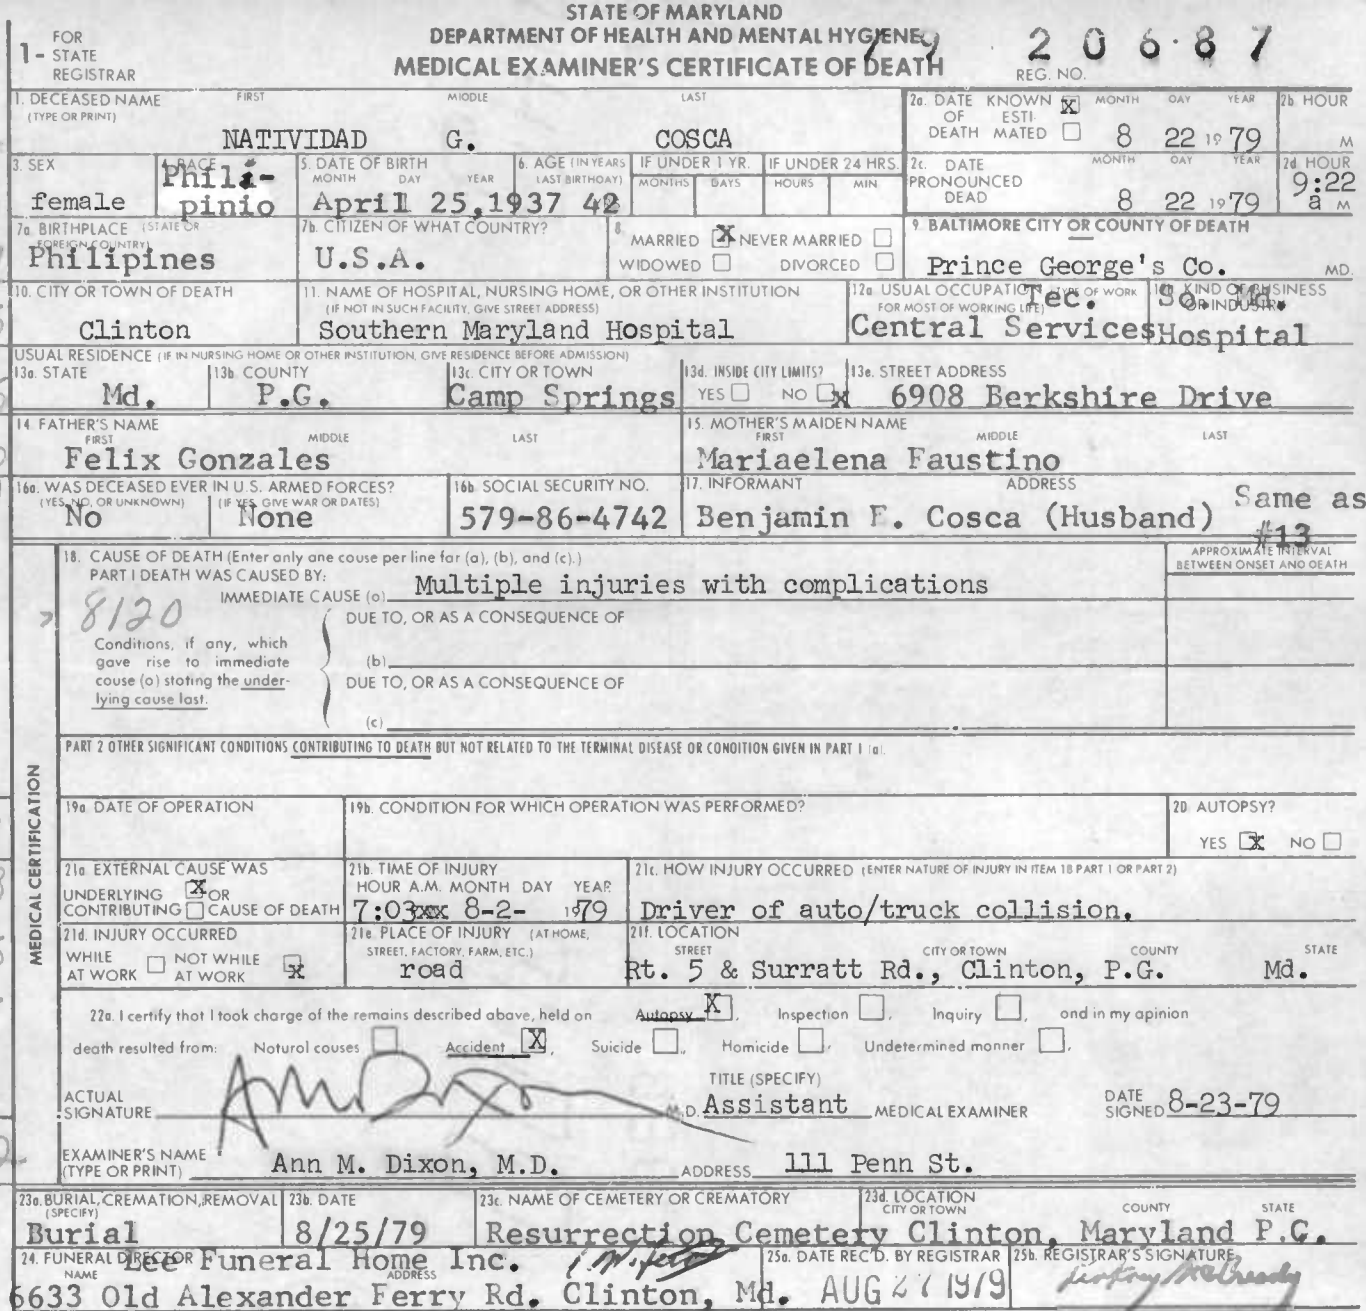 STATE OF MARYLAND
DEPARTMENT OF HEALTH AND MENTAL HYGIENE
MEDICAL EXAMINER'S CERTIFICATE OF DEATH
1- FOR STATE REGISTRAR
79 20687
REG. NO.
1. DECEASED NAME (TYPE OR PRINT) FIRST MIDDLE LAST
NATIVIDAD G. COSCA
2a. DATE OF DEATH KNOWN X ESTIMATED MONTH DAY YEAR
8 22 1979
2b HOUR M
3. SEX
female
4. RACE
Phili-
pinio
5. DATE OF BIRTH MONTH DAY YEAR
April 25,1937
6. AGE (IN YEARS LAST BIRTHDAY)
42
IF UNDER 1 YR. MONTHS DAYS
IF UNDER 24 HRS. HOURS MIN
2c. DATE PRONOUNCED DEAD MONTH DAY YEAR
8 22 1979
2d HOUR
9:22
a M
7a. BIRTHPLACE (STATE OR FOREIGN COUNTRY)
Philipines
7b. CITIZEN OF WHAT COUNTRY?
U.S.A.
8. MARRIED X NEVER MARRIED
WIDOWED DIVORCED
9. BALTIMORE CITY OR COUNTY OF DEATH
Prince George's Co. MD.
10. CITY OR TOWN OF DEATH
Clinton
11. NAME OF HOSPITAL, NURSING HOME, OR OTHER INSTITUTION
(IF NOT IN SUCH FACILITY, GIVE STREET ADDRESS)
Southern Maryland Hospital
12a. USUAL OCCUPATION (TYPE OF WORK FOR MOST OF WORKING LIFE)
Tec.
Central Services
12b. KIND OF BUSINESS OR INDUSTRY
So. Md.
Hospital
USUAL RESIDENCE (IF IN NURSING HOME OR OTHER INSTITUTION, GIVE RESIDENCE BEFORE ADMISSION)
13a. STATE
Md.
13b. COUNTY
P.G.
13c. CITY OR TOWN
Camp Springs
13d. INSIDE CITY LIMITS?
YES NO X
13e. STREET ADDRESS
6908 Berkshire Drive
14. FATHER'S NAME FIRST MIDDLE LAST
Felix Gonzales
15. MOTHER'S MAIDEN NAME FIRST MIDDLE LAST
Mariaelena Faustino
16a. WAS DECEASED EVER IN U.S. ARMED FORCES?
(YES, NO, OR UNKNOWN) (IF YES, GIVE WAR OR DATES)
No None
16b. SOCIAL SECURITY NO.
579-86-4742
17. INFORMANT ADDRESS
Benjamin F. Cosca (Husband) Same as
#13
18. CAUSE OF DEATH (Enter only one cause per line for (a), (b), and (c).)
APPROXIMATE INTERVAL BETWEEN ONSET AND DEATH
PART I DEATH WAS CAUSED BY:
IMMEDIATE CAUSE (a) Multiple injuries with complications
8120
DUE TO, OR AS A CONSEQUENCE OF
Conditions, if any, which gave rise to immediate cause (a) stating the underlying cause last.
(b)
DUE TO, OR AS A CONSEQUENCE OF
(c)
PART 2 OTHER SIGNIFICANT CONDITIONS CONTRIBUTING TO DEATH BUT NOT RELATED TO THE TERMINAL DISEASE OR CONDITION GIVEN IN PART 1 (a).
MEDICAL CERTIFICATION
19a. DATE OF OPERATION
19b. CONDITION FOR WHICH OPERATION WAS PERFORMED?
20. AUTOPSY?
YES X NO
21a. EXTERNAL CAUSE WAS
UNDERLYING X OR
CONTRIBUTING CAUSE OF DEATH
21b. TIME OF INJURY
HOUR A.M. MONTH DAY YEAR
7:03xx 8-2- 1979
21c. HOW INJURY OCCURRED (ENTER NATURE OF INJURY IN ITEM 18 PART 1 OR PART 2)
Driver of auto/truck collision.
21d. INJURY OCCURRED
WHILE AT WORK NOT WHILE AT WORK X
21e. PLACE OF INJURY (AT HOME, STREET, FACTORY, FARM, ETC.)
road
21f. LOCATION
STREET CITY OR TOWN COUNTY STATE
Rt. 5 & Surratt Rd., Clinton, P.G. Md.
22a. I certify that I took charge of the remains described above, held on Autopsy X, Inspection, Inquiry, and in my opinion
death resulted from: Natural causes, Accident X, Suicide, Homicide, Undetermined manner.
ACTUAL SIGNATURE Ann M Dixon M.D.
TITLE (SPECIFY)
Assistant MEDICAL EXAMINER
DATE SIGNED 8-23-79
EXAMINER'S NAME (TYPE OR PRINT) Ann M. Dixon, M.D.
ADDRESS 111 Penn St.
23a. BURIAL, CREMATION, REMOVAL (SPECIFY)
Burial
23b. DATE
8/25/79
23c. NAME OF CEMETERY OR CREMATORY
Resurrection Cemetery
23d. LOCATION CITY OR TOWN COUNTY STATE
Clinton, Maryland P.G.
24. FUNERAL DIRECTOR NAME ADDRESS
Lee Funeral Home Inc.
6633 Old Alexander Ferry Rd. Clinton, Md.
25a. DATE REC'D. BY REGISTRAR
AUG 27 1979
25b. REGISTRAR'S SIGNATURE